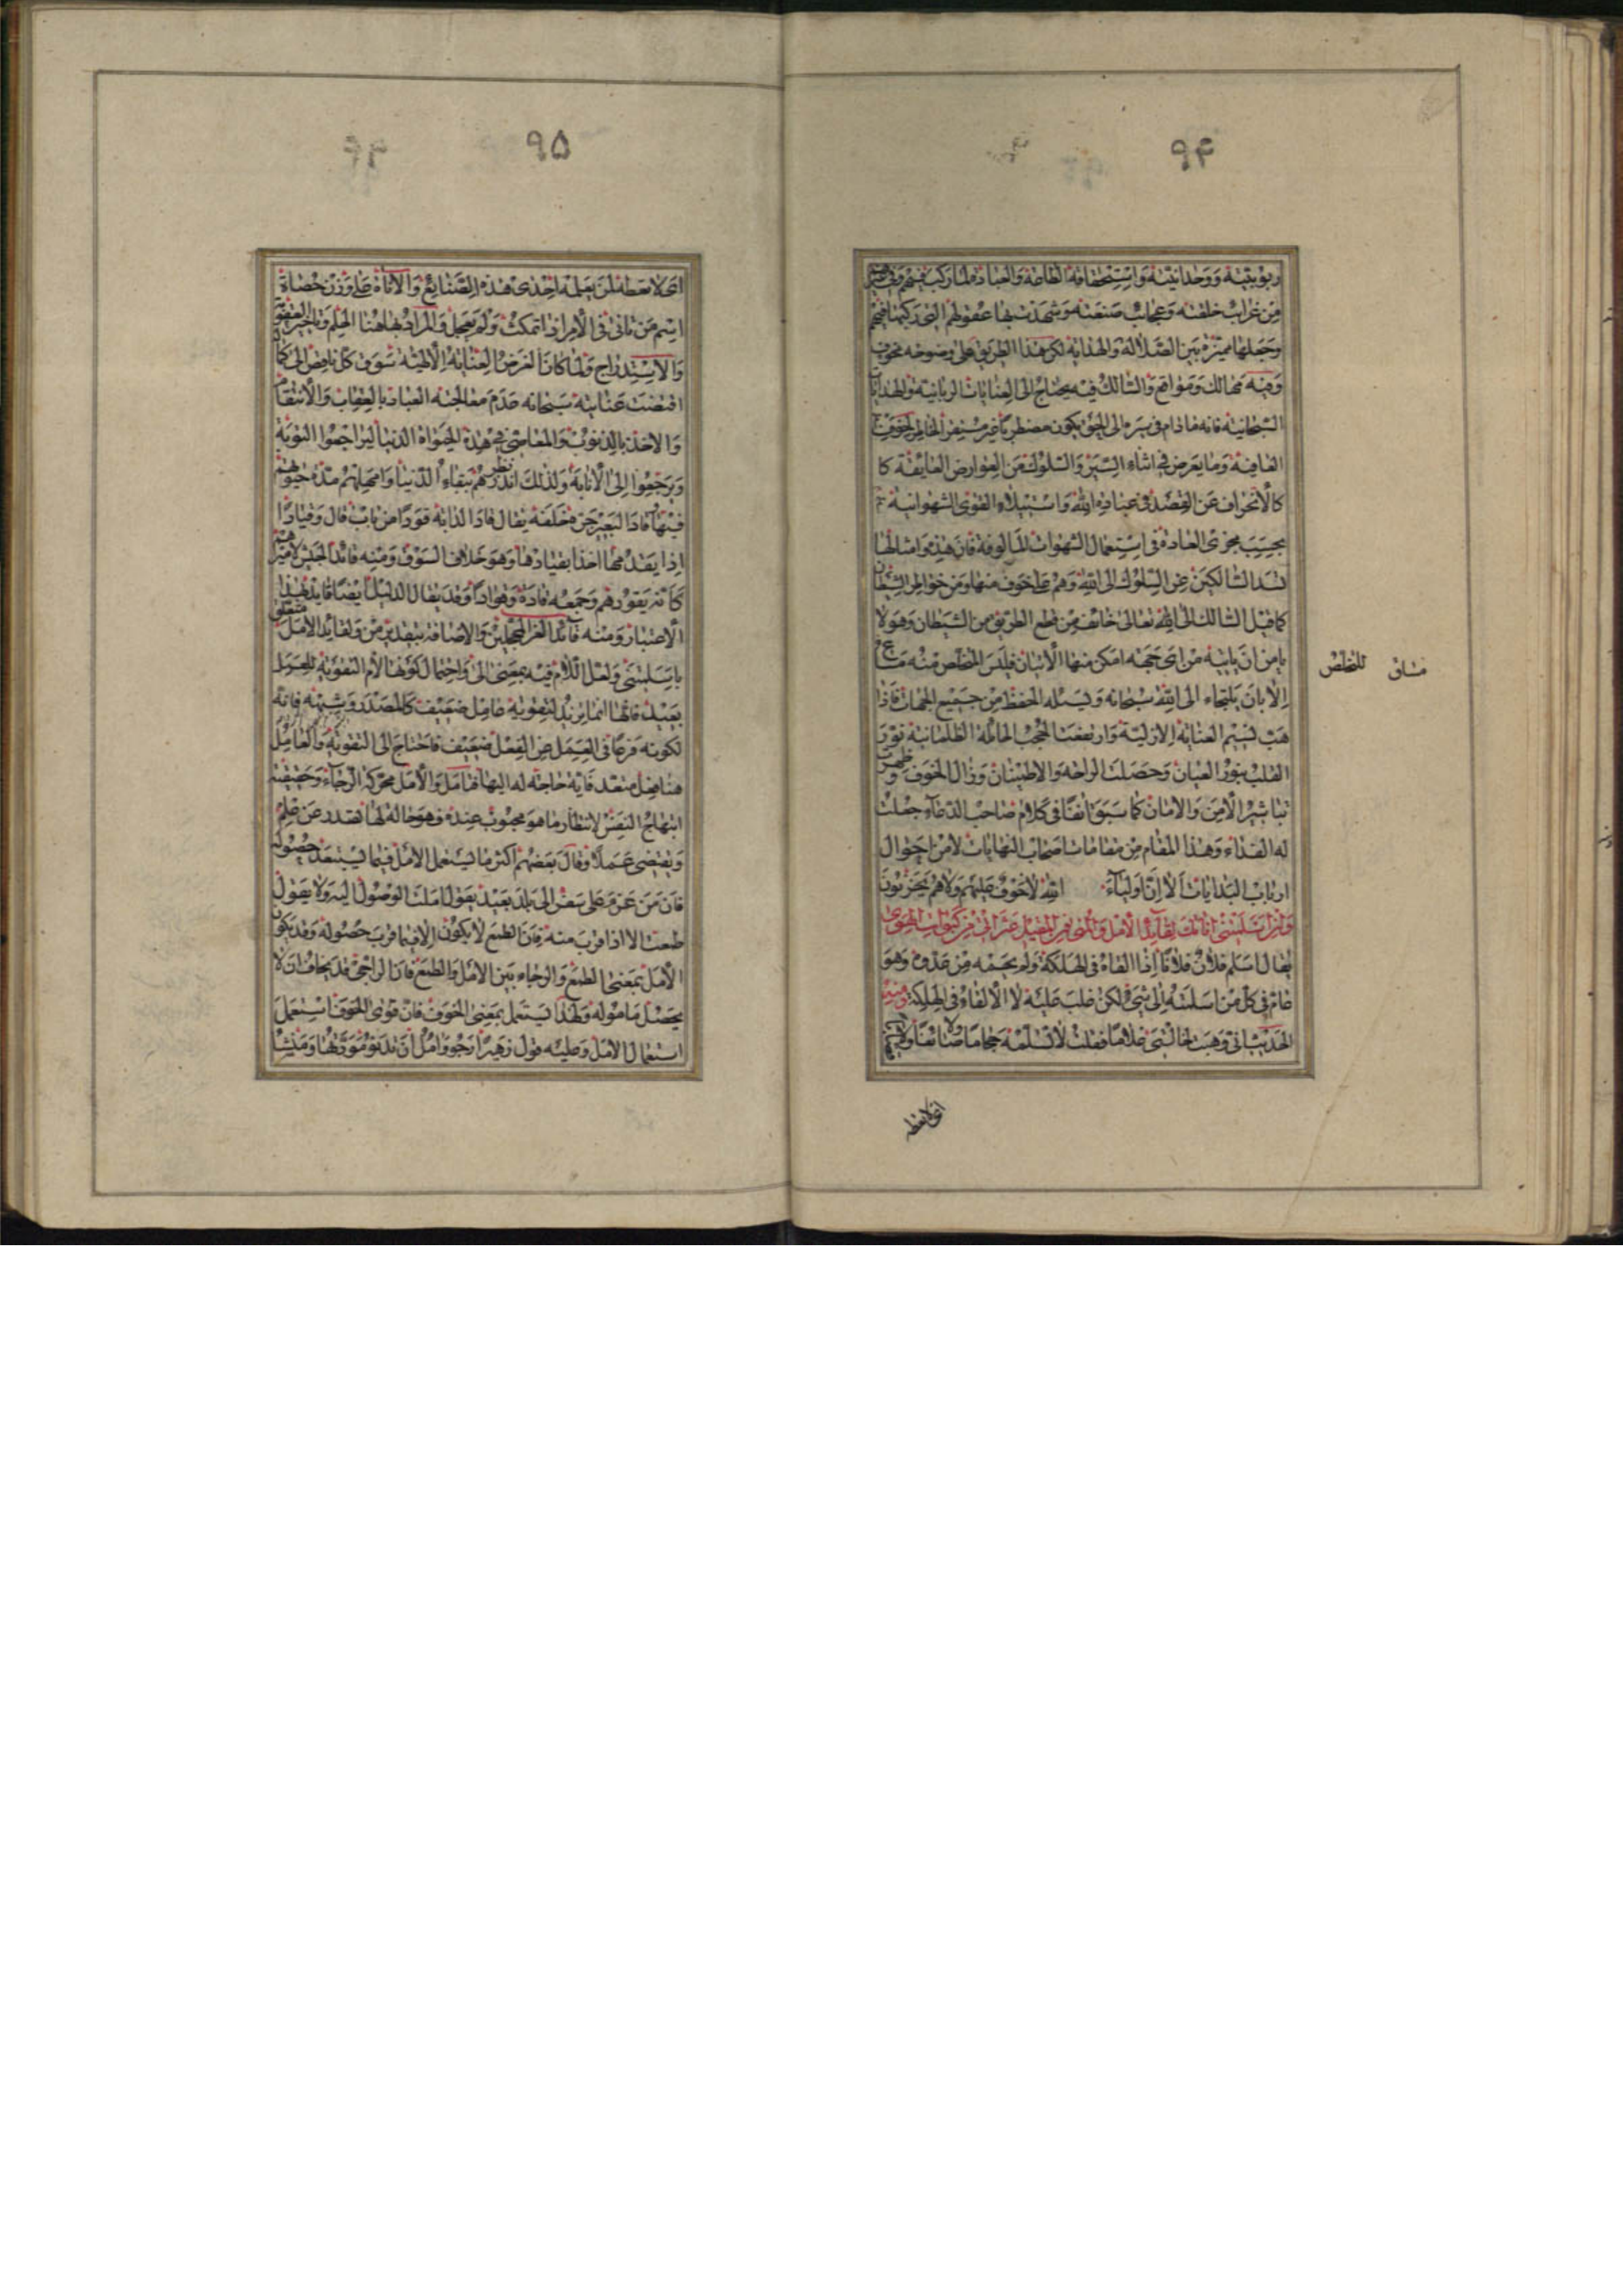 ۹۴
ربوبيته ووحدانيته واستحقاقه الطاعة والعبادة لما ركب فيهم وفي غيرهم
من غرائب خلقته وعجائب صنعته وشهدت بها عقولهم التي ركبها فيهم
وجعلها مميزة بين الضلالة والهداية لكن هذا الطريق على وضوحه مخوف
وفيه مهالك ومواقع والسالك فيه يحتاج الى العنايات الربانية والهدايات
السبحانية فانه ما دام في سيره الى الحق يكون مضطربا غير مستقر الخاطر لخوف
العاقبة وما يعرض في اثناء السير والسلوك من العوارض العايقة كا
كالانحراف عن القصد في عبادة الله واستيلاء القوى الشهوانية
بحسب مجرى العادة في استعمال الشهوات المالوفة فان هذه وامثالها
تسد السالكين عن السلوك الى الله وهم على خوف منها ومن خواطر الشيطان
كما قيل السالك الى الله تعالى خائف من قطع الطريق من الشيطان وهو لا
يامن ان ياتيه من اى جهة امكن منها الاتيان فليس المخلص منه مساغ
الا بان يلتجاء الى الله سبحانه ويسئله الحفظ من جميع الجهات فاذا
هب نسيم العناية الازلية وارتفعت الحجب الحائلة الظلمانية نور
القلب بنور العيان وحصلت الراحة والاطمينان وزال الخوف وظهرت
تباشير الامن والامان كما سبق انفا في كلام صاحب الدعاء جعلت
له الفداء وهذا المقام من مقامات اصحاب النهايات لا من احوال
ارباب البدايات الا ان اولياء الله لا خوف عليهم ولا هم يحزنون
وان اسلمتني اناتك لقائد الامل والمنى فمن المقيل عثراتي من كبوات الهوى
يقال اسلم فلان فلانا اذا القاه في الهلكة ولم يحمه من عدوه وهو
عام في كل من اسلمته الى شيء لكن غلب عليه لا الالقاء في الهلكة ومنه
الحديث اني وهبت لخالتي غلاما فقلت لا تسلمه حجاما ولا صائغا ولا
مساق للتخلص
اى لا تعطه
۹۵
اى لا تعطه لمن يعلمه احدى هذه الصنايع والاناة على وزن حصاة
اسم من تانى في الامر اذا تمكث ولم يعجل والمراد بها هنا الحلم وتاخير العقوبة
والاستدراج ولما كان الغرض العناية الالهية سوق كل ناقص الى كماله
اقتضت عنايته سبحانه عدم معالجته العباد بالعقاب والانتقام
والاخذ بالذنوب والمعاصي في هذه الحيواة الدنيا ليراجعوا التوبة
ويرجعوا الى الانابة ولذلك انذرهم ببقاء الدنيا وامهلهم مدة حيوتهم
فيها قاد البعير جره خلفه يقال قاد الدابة قودا من باب قال وقيادا
اذا يقدمها اخذا بقيادها وهو خلاف السوق ومنه قائد الجيش لاميرهم
كانه يقودهم وجمعه قادة وقواد وقد يقال الدليل ايضا قايد لهذا
الاعتبار ومنه قائد الغر المحجلين والاضافة بتقدير من ولقايد الامل متعلق
باسلمتني ولعل اللام فيه بمعنى الى واحتمال كونها لام التقوية للعمل
بعيد فانها انما يزيد لتقوية عامل ضعيف كالمصدر وشبهه فانه
لكونه فرعا في العمل من الفعل ضعيف فاحتاج الى التقوية والعامل
هنا فعل متعد فاية حاجة له اليها فتامل والامل محركة الرجاء وحقيقته
ابتهاج النفس لانتظار ما هو محبوب عنده فهو حالة لها تصدر عن علم
ويقتضي عملا وقال بعضهم اكثر ما يستعمل الامل فيما يستبعد حصوله
فان من عزم على سفر الى بلد بعيد يقول املت الوصول اليه ولا يقول
طمعت الا اذا قرب منه فان الطمع لا يكون الا فيما قرب حصوله وقد يكون
الامل بمعنى الطمع والرجاء بين الامل والطمع فان الراجي قد يخاف ان لا
يحصل ماموله ولهذا يستعمل بمعنى الخوف فان قوى الخوف استعمل
استعمال الامل وعليه قول زهير ارجو وامل ان تدنو مودتها ومنشا